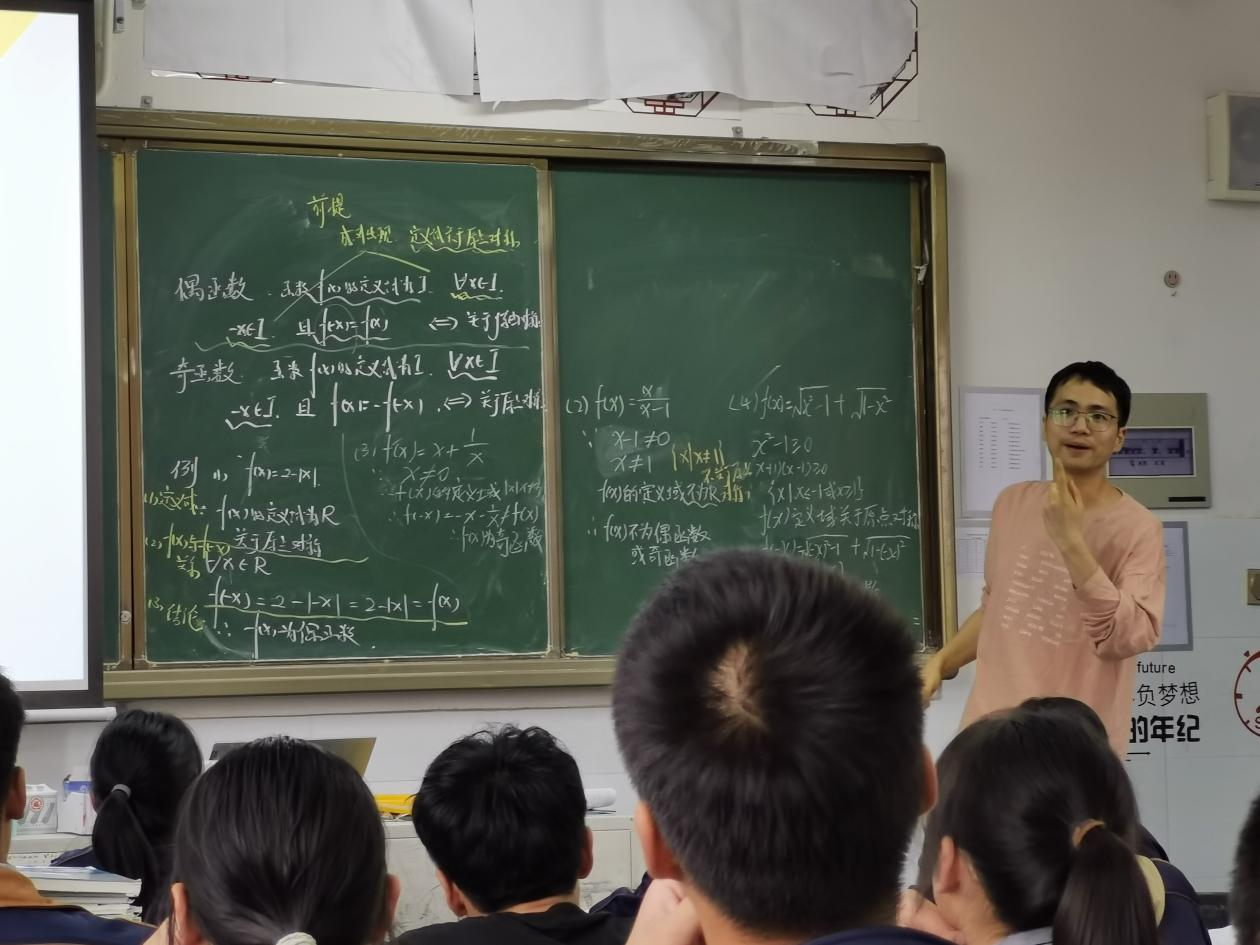 前提
成对出现 定义域关于原点对称
偶函数. 函数f(x)的定义域为I. ∀x∈I.
-x∈I. 且 f(-x)=f(x) ⇔ 关于y轴对称
奇函数. 函数f(x)的定义域为I. ∀x∈I
-x∈I. 且 f(x)=-f(-x). ⇔ 关于原点对称
例 (1) f(x)=2-|x|.
(1)定义域: f(x)的定义域为R
(2) f(x)与f(-x) 关于原点对称
∀x∈R
(3)结论 f(-x)=2-|-x|=2-|x|=f(x)
∴ f(x)为偶函数
(3) f(x)=x+1/x
x≠0
f(x)的定义域
∴ f(-x)=-x-1/x≠f(x)
∴f(x)为奇函数
(2) f(x)=x/x-1
∵ x-1≠0
x≠1 {x|x≠1}
f(x)的定义域不为R
∴ f(x)不为偶函数
或奇函数
(4) f(x)=√x²-1+√1-x²
x²-1≥0
(x+1)(x-1)≥0
f(x)定义域关于原点对称
f(-x)=√(-x)²-1+√1-(-x)²
future
负梦想
的年纪